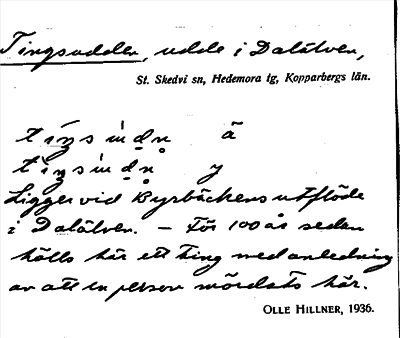 Tingsudden, udde i Dalälven,
St. Skedvi sn, Hedemora tg, Kopparbergs län.
ä
y
Ligger vid Byrbäckens utflöde
i Dalälven. – För 100 år sedan
hölls här ett ting med anledning
av att en person mördats här.
OLLE HILLNER, 1936.